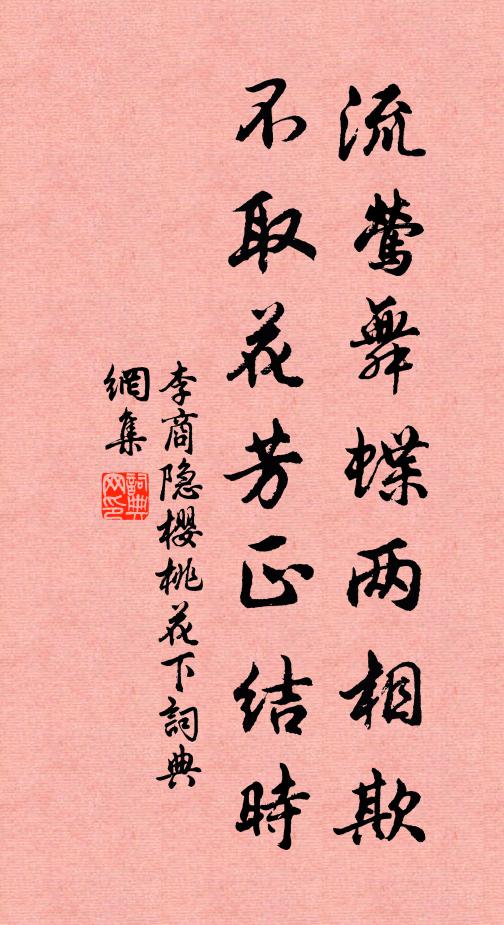 流莺舞蝶两相欺
不取花芳正结時
李商隐櫻桃花下詞典
網集
詞典
网印